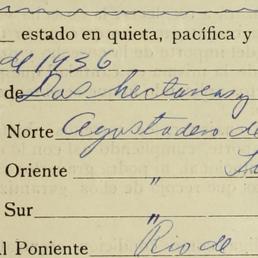 estado en quieta, pacífica y
de 1936
de Dos hectareas y
Norte Agostadero de
Oriente " La
Sur "
Al Poniente Rio de